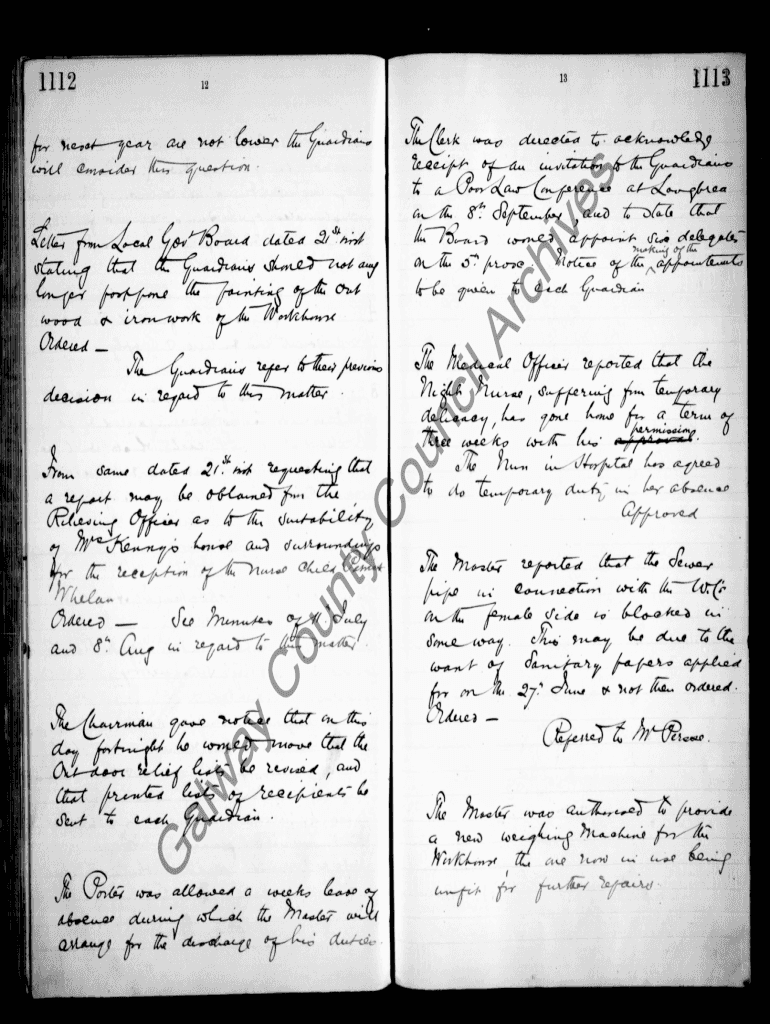 1112
12
for next year are not lower the Guardians
will consider this question.
Letter from Local Govt Board dated 21st inst
stating that the Guardians should not any
longer postpone the painting of the out
wood & iron work of the Workhouse
Ordered —
The Guardians refer to their previous
decision in regard to this matter.
From same dated 21st inst requesting that
a report may be obtained from the
Relieving Officer as to the suitability
of Mrs Kenny's house and surroundings
for the reception of the Nurse Child
Whelan
Ordered — See Minutes of 11. July
and 8th Aug in regard to this matter.
The Chairman gave notice that on this
day fortnight he would move that the
Out door relief lists be revised, and
that printed lists of recipients be
sent to each Guardian.
The Porter was allowed a weeks leave of
absence during which the Master will
arrange for the discharge of his duties.
13
1113
The Clerk was directed to acknowledge
receipt of an invitation to the Guardians
to a Poor Law Conference at Loughrea
on the 8th September, and to state that
the Board would appoint six delegates
making of the
on the 5th prox. Notice of the appointments
to be given to each Guardian
The Medical Officer reported that the
Night Nurse, suffering from temporary
delicacy, has gone home for a term of
permission.
three weeks with his approval.
The Nun in Hospital has agreed
to do temporary duty in her absence
Approved
The Master reported that the Sewer
pipe in connection with the W.C's
on the female side is blocked in
some way. This may be due to the
want of Sanitary papers applied
for on the 27th June & not then ordered.
Ordered —
Referred to Mr Persse.
The Master was authorised to provide
a new weighing Machine for the
Workhouse, the one now in use being
unfit for further repairs.
Galway County Council Archives